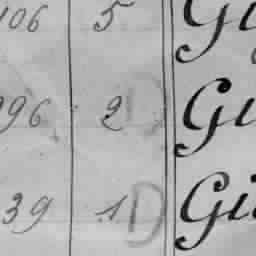 106 5 Gi
96 2 D Gi
39 1 D Gi